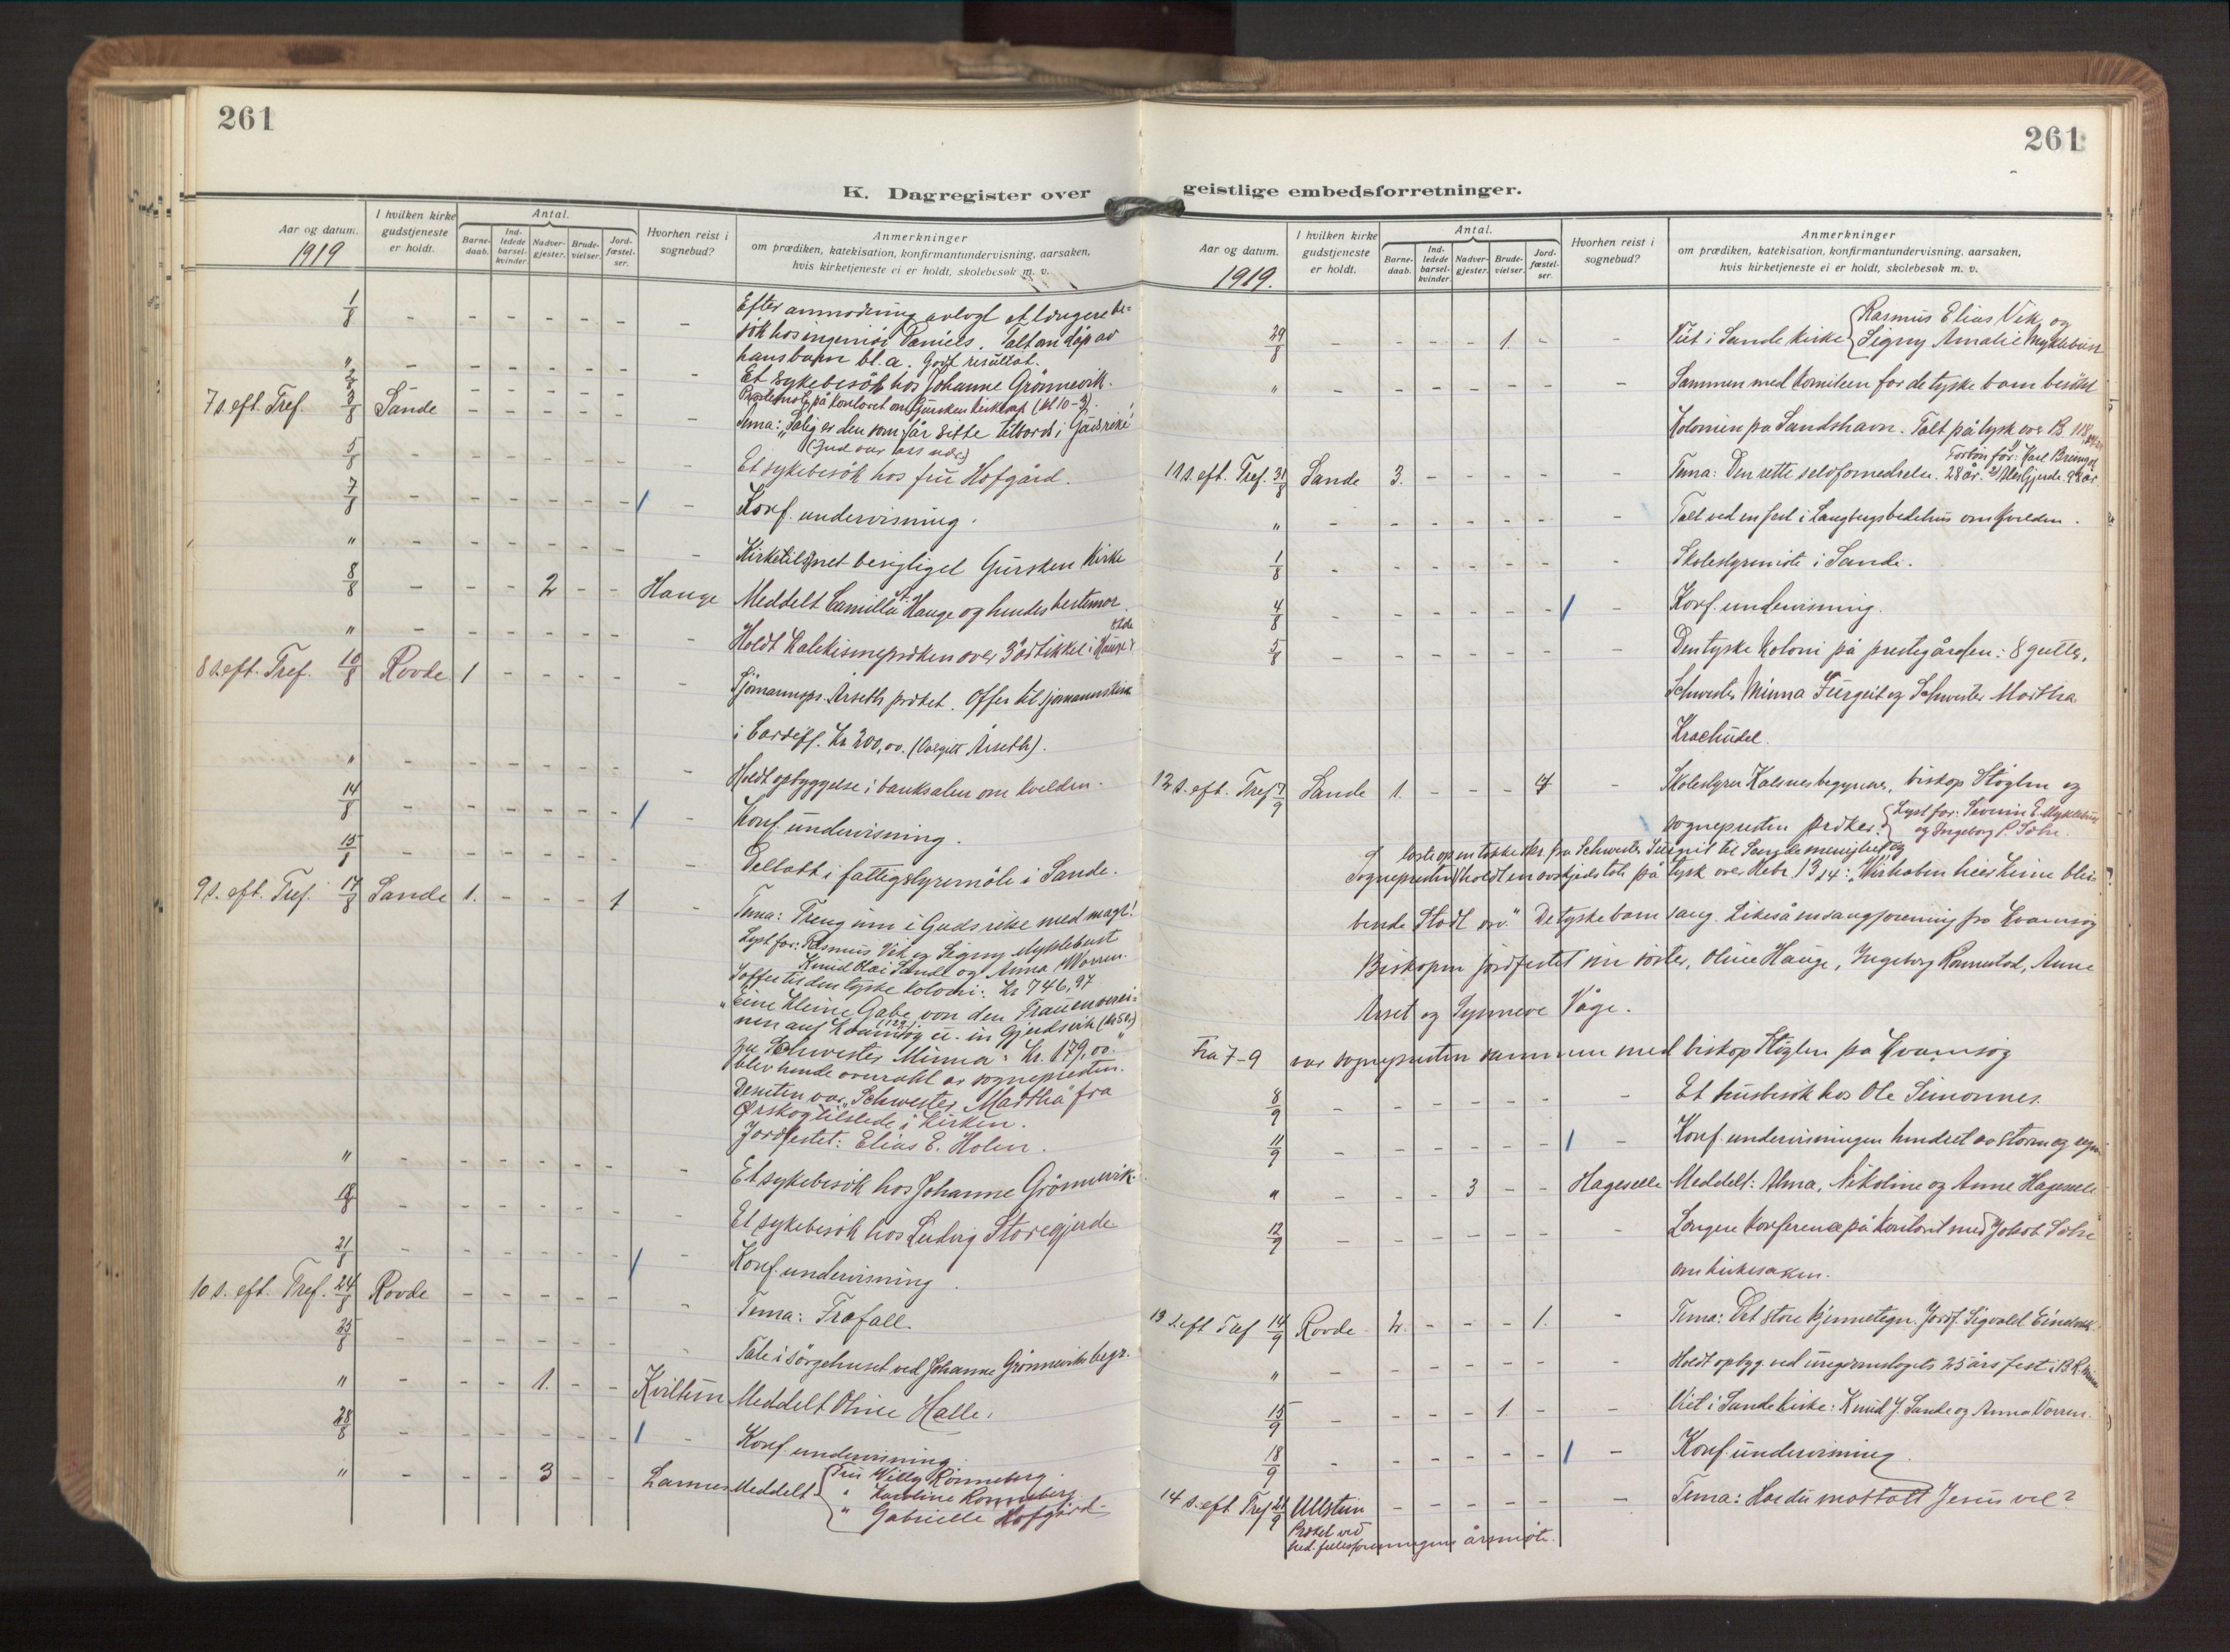 261
K. Dagregister over
Aar og datum.
1919
I hvilken kirke gudstjeneste er holdt.
Antal.
Barne-daab.
Ind-ledede barsel-kvinder.
Nadver-gjester.
Brude-vielser.
Jord-fæstel-ser.
Hvorhen reist i sognebud?
Anmerkninger
om prædiken, katekisation, konfirmantundervisning, aarsaken,
hvis kirketjeneste ei er holdt, skolebesøk m. v.
1/8 - - - - - - - Efter anmodning avlagt et længere be=
søk hos ingeniør Daniels. Talt om dåp av
hans barn bl. a. Godt resultat.
" - - - - - - -
2/8 Et sykebesøk hos Johanne Grönnevik.
på kontoret om Gursken kirkesak (kl 10-3).
7 s. eft. Tref. 3/8 Sande - - - - - - Tema: "Salig er den som får sitte tilbords i Guds rike"
(Gud var oss nær)
5/8 - - - - - - - Et sykebesøk hos fru Hofgård.
7/8 - - - - - - / - Konf. undervisning.
" - - - - - - - Kirketilsynet besigtiget Gursken kirke
8/8 - - - 2 - - Hauge Meddelt Camilla Hauge og hendes bestemor.
" - - - - - - - Holdt Katekismepræken over 3 artikkel i Hauge's
8 s. eft. Tref. 10/8 Rovde 1 - - - - - Sjömannspr. Årseth præket. Offer til sjömannskirken
i Cardiff. Kr 200,00. (Avgitt Årseth).
" - - - - - - - Holdt opbyggelse i banksalen om kvelden.
14/8 - - - - - - / - Konf. undervisning.
15/8 - - - - - - - Deltatt i fattigstyremöte i Sande.
9 s. eft. Tref. 17/8 Sande 1. - - - 1 - Tema: Treng inn i Guds rike med magt!
Lyst for: Rasmus Vik og Signy Myklebust
Knud Olai Sande og Anna Vorren.
Ioffer til den tyske koloni: Kr 746,97
"Eine kleine Gabe von den Frauenverei=
nen auf Kvamsøy (129) u. in Gjerdsvik (kr 50,)
zu Schwester Minna: Kr. 179,00."
blev hende overrakt av sognepresten.
Desuten var "Schwester Martha" fra
Ørskog tilstede i kirken.
Jordfestet: Elias E. Holen.
" - - - - - - - Et sykebesøk hos Johanne Grönnevik.
18/8 - - - - - - - Et sykebesøk hos Ludvig Storegjerde
21/8 - - - - - - / - Konf. undervisning.
10 s. eft. Tref. 24/8 Rovde - - - - - - Tema: Frafall.
25/8 - - - - - - - Tale i sørgehuset ved Johanne Grönneviks begr.
" - - - 1. - - Kviltun Meddelt Oline Halle.
28/8 - - - - - - / - Konf. undervisning
" - - - 3 - - Larsnes Meddelt Fru Willy Rønneberg.
" Karoline Rønneberg
" Gabrielle Hofgård
261
geistlige embedsforretninger.
Aar og datum.
1919.
I hvilken kirke gudstjeneste er holdt.
Antal.
Barne-daab.
Ind-ledede barsel-kvinder.
Nadver-gjester.
Brude-vielser.
Jord-fæstel-ser.
Hvorhen reist i sognebud?
Anmerkninger
om prædiken, katekisation, konfirmantundervisning, aarsaken,
hvis kirketjeneste ei er holdt, skolebesøk m. v.
29/8 - - - - 1. - - Viet i Sande kirke Rasmus Elias Vik og
Signy Amalie Myklebust
" - - - - - - - Sammen med komiteen for de tyske barn besökt
Kolonien på Sandshavn. Talt på tysk over Ps. 118,
Forbön for: Karl
11 s. eft. Tref. 31/8 Sande 3. - - - - - Tema: Den rette selvfornedrelse. 28 år. Gjerde. 98 år
" - - - - - - - Talt ved en fest i Langbergs bedehus om kvelden.
1/8 - - - - - - - Skolestyremöte i Sande.
4/8 - - - - - - / - Konf. undervisning.
5/8 - - - - - - - Den tyske koloni på prestegården: 8 gutter,
Schwester Minna og Schwester Martha
Krachudel.
12 s. eft. Tref 7/9 Sande 1. - - - 4 - Skolestyrer Kalsnes begynner, biskop Støylen og
sognepresten præker. Lyst for: Severin E. Myklebust
og Ingeborg P. Sohr.
Læste op en takkeskr. fra Schwester til Sande menighet og
Sognepresten holdt en avskjeds tale på tysk over Hebr. 13,14: "Wir haben hier keine blei=
bende Stadt osv." De tyske barn sang. Likeså en sangforening fra Kvamsöy
Biskopen jordfestet Oline Hauge, Ingeborg Rønnestad, Anne
Årset og Synneve Våge.
Fra 7-9 var sognepresten sammen med biskop Støylen på Kvamsøy
8/9 - - - - - - - Et husbesøk hos Ole Simonnes.
11/9 - - - - - - / - Konf. undervisningen hindret av storm og regn
" - - - 3 - - Hageselle Meddelt: Alma, Nikoline og Anne Hageselle
12/9 - - - - - - - Længere konferense på kontoret med Jakob Sohr
om kirkesaken.
13 s. eft Tref 14/9 Rovde 2. - - - 1. - Tema: Det store kjennetegn. Jordf. Sigvald Eindsvik.
" - - - - - - - Holdt opbyg. ved ungdomslagets 25 års fest i
15/9 - - - - 1. - - Viet i Sande kirke: Knud J. Sande og Anna Vorren.
18/9 - - - - - - / - Konf. undervisning.
14 s. eft Tref 21/9 Ullstein - - - - - - Tema: Har du mottatt Jesus vel?
Præket ved
årsmöte.